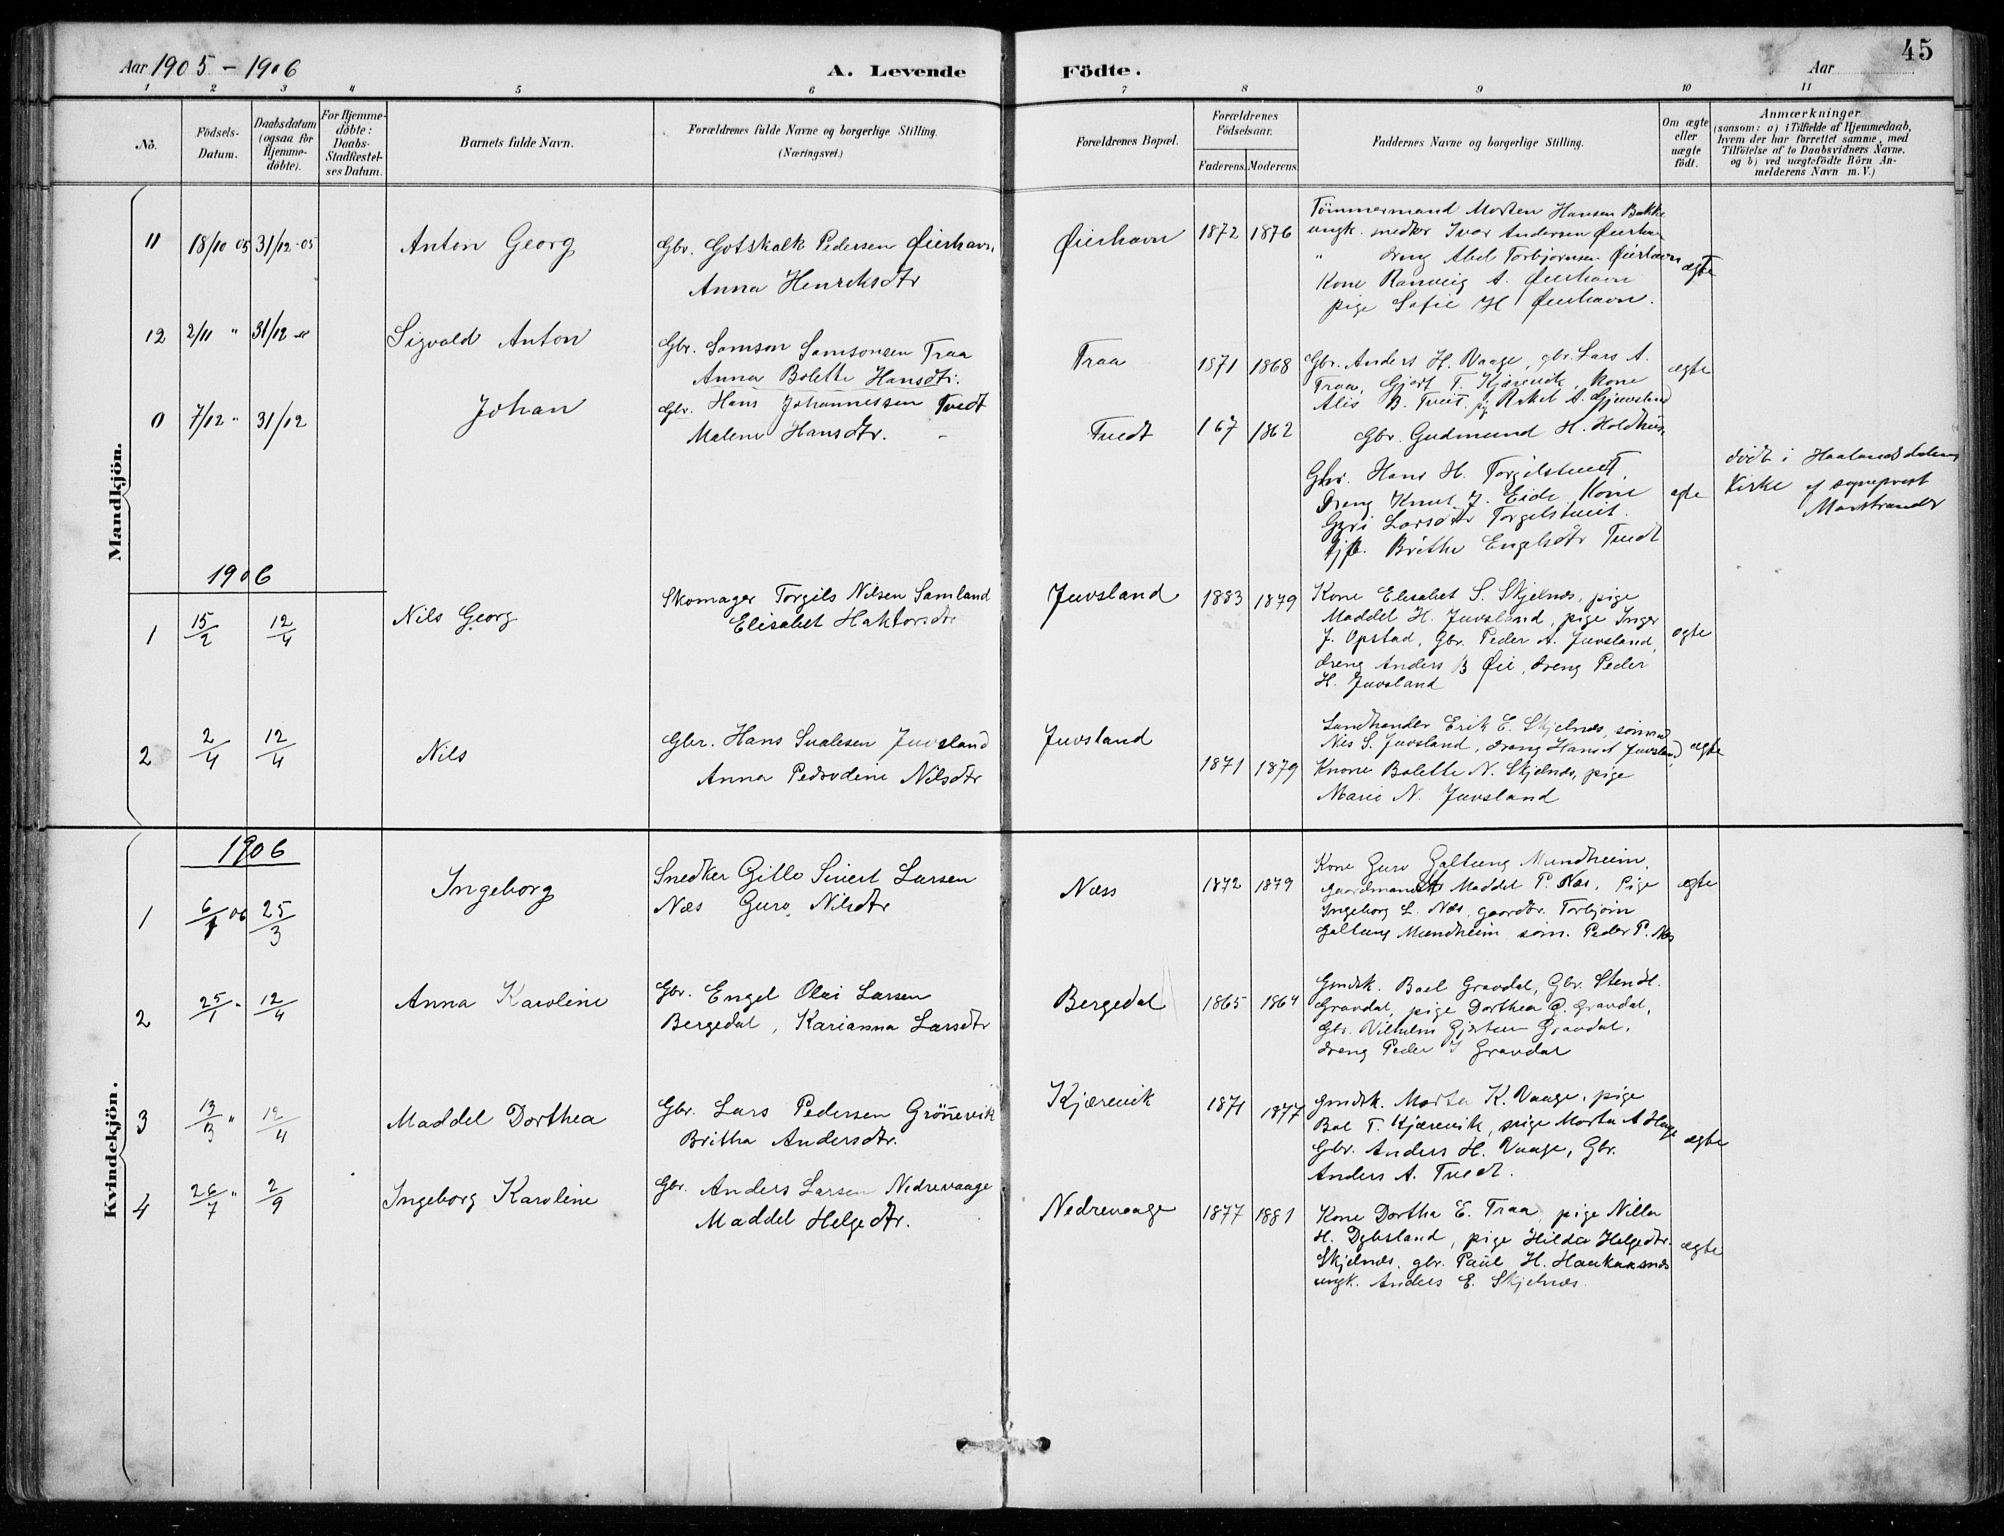 45
Aar 1905 - 1906
A. Levende Födte.
Aar
1 2 3 4 5 6 7 8 9 10 11
No.
Födsels-
Datum.
Daabsdatum
(ogsaa for
Hjemme-
döbte).
For Hjemme-
döbte:
Daabs-
Stadfæstel-
ses Datum.
Barnets fulde Navn.
Forældrenes fulde Navne og borgerlige Stilling.
(Næringsvei.)
Forældrenes Bopæl.
Forældrenes
Födselsaar.
Faderens. Moderens.
Faddernes Navne og borgerlige Stilling.
Om ægte
eller
uægte
födt.
Anmærkninger
(saasom: a) i Tilfælde af Hjemmedaab,
hvem der har forrettet samme, med
Tilföielse af to Daabsvidners Navne.
og b) ved uægtefödte Börn An-
melderens Navn m. V.)
Mandkjön.
11 18/10 05 31/12-05 Anton Georg
Gbr. Gotskalk Pedersen Øierhavn
Anna Henriksdtr
Øierhavn 1872 1876
Tömmermand Morten Hansen Bakke
ungk. snedker Ivar Andersen Øierhavn
" dreng Abel Torbjørnsen Øierhavn
Kone Ranveig A. Øierhavn
pige Sofie H Øierhavn.
ægte
12 2/11 " 31/12 " Sigvald Anton
Gbr. Samson Samsonsen Traa
Anna Bolette Hansdtr.
Traa 1871 1868
Gbr. Anders H. Vaage, gbr. Lars A.
Traa, Gjert T. Kjærevik, kone
Alis B. Tveit. pg Rakel A. Gjuvsland
ægte
0 7/12 " 31/12 Johan
Gbr. Hans Johannessen Tvedt
Malene Hansdtr. -
Tvedt 167 1862
Gbr. Gudmund H. Holdhus,
Gbr. Hans H. Torgilstveit,
Dreng Knut J. Eide, Kone
Gyri Larsdtr Torgilstveit.
Britha Engelsdtr Tvedt
ægte
døbt i Haalandsdalens
Kirke af sogneprest
Marstrander
1906
1 15/2 12/4 Nils Georg
Skomager Torgils Nilsen Samland
Elisabet Haktorsdtr
Juvsland 1883 1879
Kone Elisabet S. Skjelnæs, pige
Maddel H. Juvsland, pige Inger
J. Opstad, Gbr. Peder A. Juvsland,
dreng Anders B Øie, dreng Peder
H. Juvsland
ægte
2 2/4 12/4 Nils
Gbr. Hans Sjualesen Juvsland
Anna Pedovdine Nilsdtr
Juvsland 1871 1879
Landhandler Erik E. Skjelnæs, sømand
Nils S. Juvsland, dreng Hans A Juvsland,
Knone Bolette N. Skjelnæs, pige
Marie N. Juvsland
ægte
Kvindekjön.
1906
1 6/1 06 25/3 Ingeborg
Snedker Gitle Sivert Larsen
Næs Guro Nilsdtr
Næss 1872 1879
Kone Guro Galtung Mundheim,
Maddel P. Næs, Pige
Ingeborg L. Næs, gaardbr. Torbjørn
Galtung Mundheim, søm. Peder P. Næs
ægte
2 25/1 " 12/4 Anna Karoline
Gbr. Engel Olai Larsen
Bergedal, Karianna Larsdtr
Bergedal 1865 1864
Gmdsk. Boel Gravdal, Gbr. Sten H.
Gravdal, pige Dorthea C. Gravdal,
Gbr. Vilhelm Gjertsen Gravdal,
dreng Peder J Gravdal
3 13/3 " 12/4 Maddel Dorthea
Gbr. Lars Pedersen Grönnevik
Britha Andersdtr.
Kjærevik 1871 1877
gmdsk. Marta K. Vaage, pige
Bol T. Kjærevik, pige Marta A Hauge
Gbr. Anders H. Vaage, Gbr.
Anders A. Tvedt.
ægte
4 26/7 " 2/9 Ingeborg Karoline
Gbr. Anders Larsen Nedrevaage
Maddel Helgedtr.
Nedrevaage 1877 1881
Kone Dortha E. Traa, pige Nilla
H. Dybsland, pige Hilda Helgedtr.
Skjelnæs, gbr. Paul H. Haukaasnæs
ungk. Anders E. Skjelnæs.
ægte